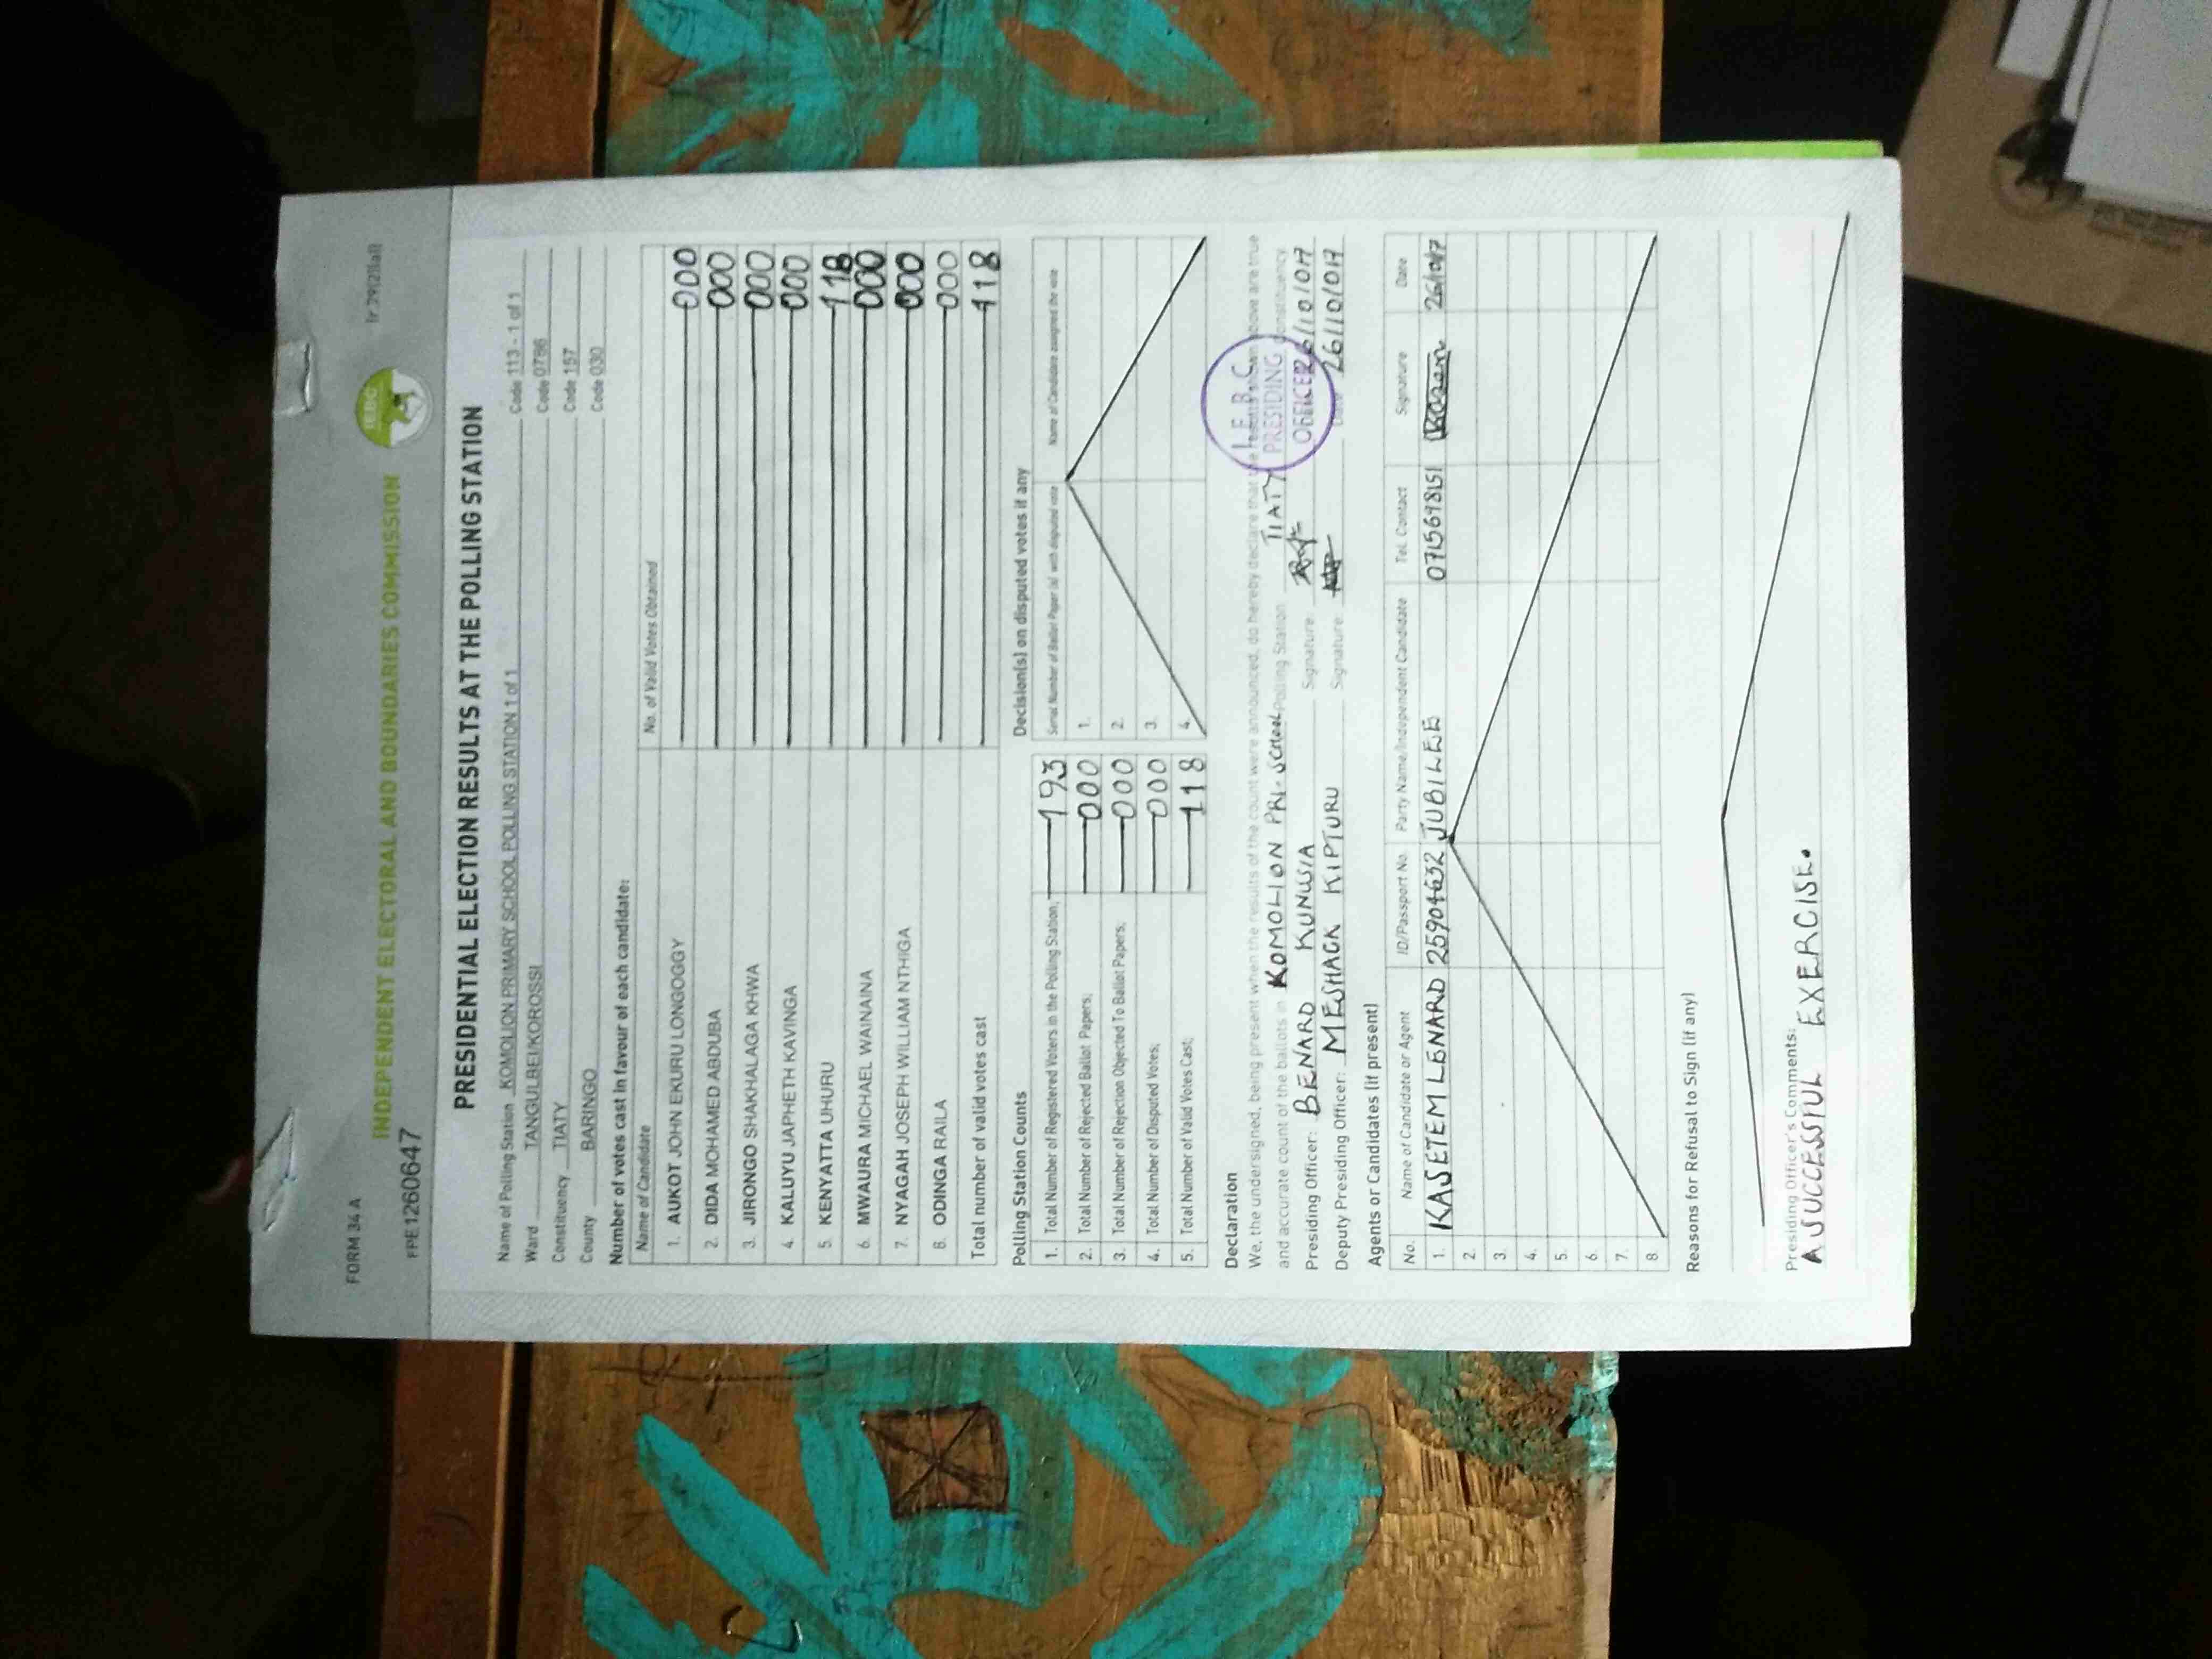 FORM 34 A
INDEPENDENT ELECTORAL AND BOUNDARIES COMMISSION
IEBC
FPE1260647
PRESIDENTIAL ELECTION RESULTS AT THE POLLING STATION
Name of Polling Station KOMOLION PRIMARY SCHOOL POLLING STATION 1 of 1 Code 113 - 1 of 1
Ward TANGULBEI/KOROSSI Code 0786
Constituency TIATY Code 157
County BARINGO Code 030
Number of votes cast in favour of each candidate:
Name of Candidate No. of Valid Votes Obtained
1. AUKOT JOHN EKURU LONGOGGY 000
2. DIDA MOHAMED ABDUBA 000
3. JIRONGO SHAKHALAGA KHWA 000
4. KALUYU JAPHETH KAVINGA 000
5. KENYATTA UHURU 118
6. MWAURA MICHAEL WAINAINA 000
7. NYAGAH JOSEPH WILLIAM NTHIGA 000
8. ODINGA RAILA 000
Total number of valid votes cast 118
Polling Station Counts
1. Total Number of Registered Voters in the Polling Station; 193
2. Total Number of Rejected Ballot Papers; 000
3. Total Number of Rejection Objected To Ballot Papers; 000
4. Total Number of Disputed Votes; 000
5. Total Number of Valid Votes Cast; 118
Decision(s) on disputed votes if any
Serial Number of Ballot Paper (s) with disputed vote Name of Candidate assigned the vote
1.
2.
3.
4.
Declaration
We, the undersigned, being present when the results of the count were announced, do hereby declare that the results shown above are true
and accurate count of the ballots in KOMOLION PRI. SCHOOL Polling Station TIATY Constituency
I.E.B.C. PRESIDING OFFICER
Presiding Officer: BENARD KUNUSIA Signature: 26/10/017
Deputy Presiding Officer: MESHACK KIPTURU Signature: Date 26/10/017
Agents or Candidates (if present)
No. Name of Candidate or Agent ID/Passport No. Party Name/Independent Candidate Tel. Contact Signature Date
1. KASETEM LENARD 25904632 JUBILEE 0715698151 26/10/17
2
3.
4.
5.
6
7.
8
Reasons for Refusal to Sign (if any)
Presiding Officer's Comments:
A SUCCESSFUL EXERCISE.